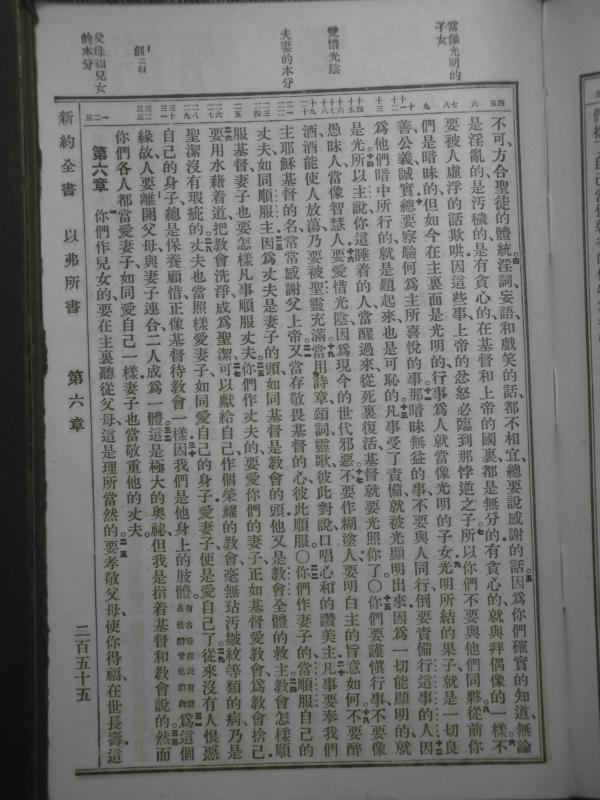 當像光明的
子女
愛惜光陰
夫妻的本分
創二
父母和兒女
的本分
不可、方合聖徒的體統。淫詞、妄語和戲笑的話、都不相宜、總要說感謝的話、因爲你們確實的知道、無論
是淫亂的、是汚穢的、是有貪心的、在基督和上帝的國裏、都是無分的、有貪心的、就與拜偶像的一樣、不
要被人虛浮的話欺哄、因這些事、上帝的忿怒必臨到那悖逆之子、所以你們不要與他們同夥、從前你
們是暗昧的、但如今在主裏面是光明的、行事爲人就當像光明的子女、光明所結的果子、就是一切良
善公義誠實、總要察驗何爲主所喜悅的事、那暗昧無益的事、不要與人同行、倒要責備行這事的人、因
爲他們暗中所行的、就是題起來也是可恥的、凡事受了責備、就被光顯明出來、因爲一切能顯明的就
是光、所以主說、你這睡着的人、當醒過來、從死裏復活、基督就要光照你了〇你們要謹愼行事、不要像
愚昧人、當像智慧人、要愛惜光陰、因爲現今的世代邪惡、不要作糊塗人、要明白主的旨意如何、不要醉
酒、酒能使人放蕩、乃要被聖靈充滿、當用詩章、頌詞、靈歌、彼此對說、口唱心和的讚美主、凡事要奉我們
主耶穌基督的名、常常感謝父上帝、又當存敬畏基督的心、彼此順服〇你們作妻子的、當順服自己的
丈夫、如同順服主、因爲丈夫是妻子的頭、如同基督是教會的頭、他又是教會全體的救主、教會怎樣順
服基督、妻子也要怎樣凡事順服丈夫、你們作丈夫的、要愛你們的妻子、正如基督愛教會、爲教會捨己、
要用水藉着道、把教會洗淨、成爲聖潔、可以獻給自己、作個榮耀的教會、毫無玷汚皺紋等類的病、乃是
聖潔沒有瑕疵的、丈夫也當照樣愛妻子、如同愛自己的身子、愛妻子、便是愛自己了、從來沒有人恨惡
自己的身子、總是保養顧惜、正像基督待教會一樣、因我們是他身上的肢體、爲這個
緣故、人要離開父母、與妻子連合、二人成爲一體、這是極大的奧祕、但我是指着基督和教會說的、然而
你們各人都當愛妻子、如同愛自己一樣、妻子也當敬重他的丈夫。
第六章 你們作兒女的、要在主裏聽從父母、這是理所當然的、要孝敬父母、使你得福、在世長壽、這
新約全書 以弗所書 第六章 二百五十五